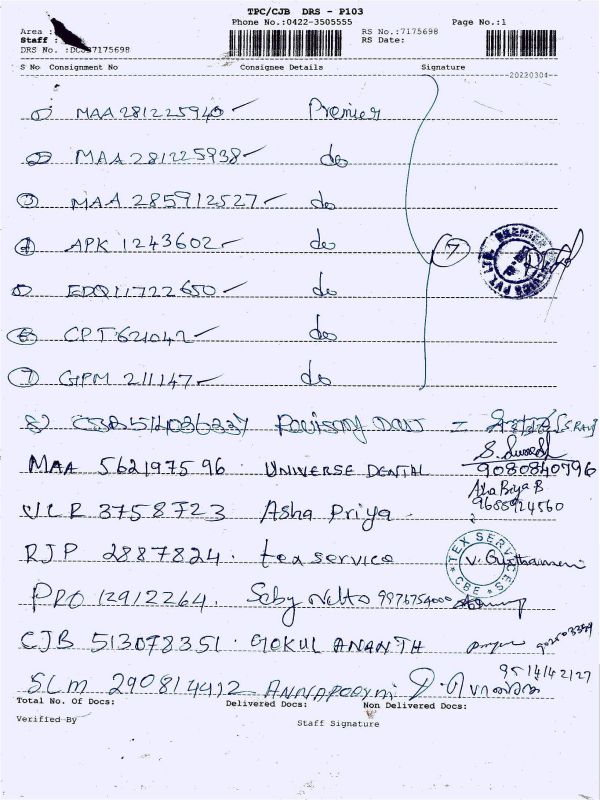 TPC/CJB DRS - P103
Phone No.:0422-3505555 Page No.:1
Area :
Staff : RS No.:7175698
DRS No. :DCJB7175698 RS Date:
S No Consignment No Consignee Details Signature
20220304
1 MAA 281225940 Premier
2 MAA 281225938 do
3 MAA 285912527 do
4 APK 1243602 do 7
5 EDQ11722650 do
6 CPT621042 do
7 GPM 211147 do
8) CJB514086337
MAA 562197596 . UNIVERSE DENTAL 9080840796
VLR 3758723 Asha Priya . 9688924560
RJP 2887824 . tex service TEX SERVICES CBE
PRO 12912264. Seby 9976754000
CJB 513078351 . GOKUL ANANTH
SLM 290814912 ANNAPOORNI 9514142127
Total No. Of Docs: Delivered Docs: Non Delivered Docs:
Verified By Staff Signature